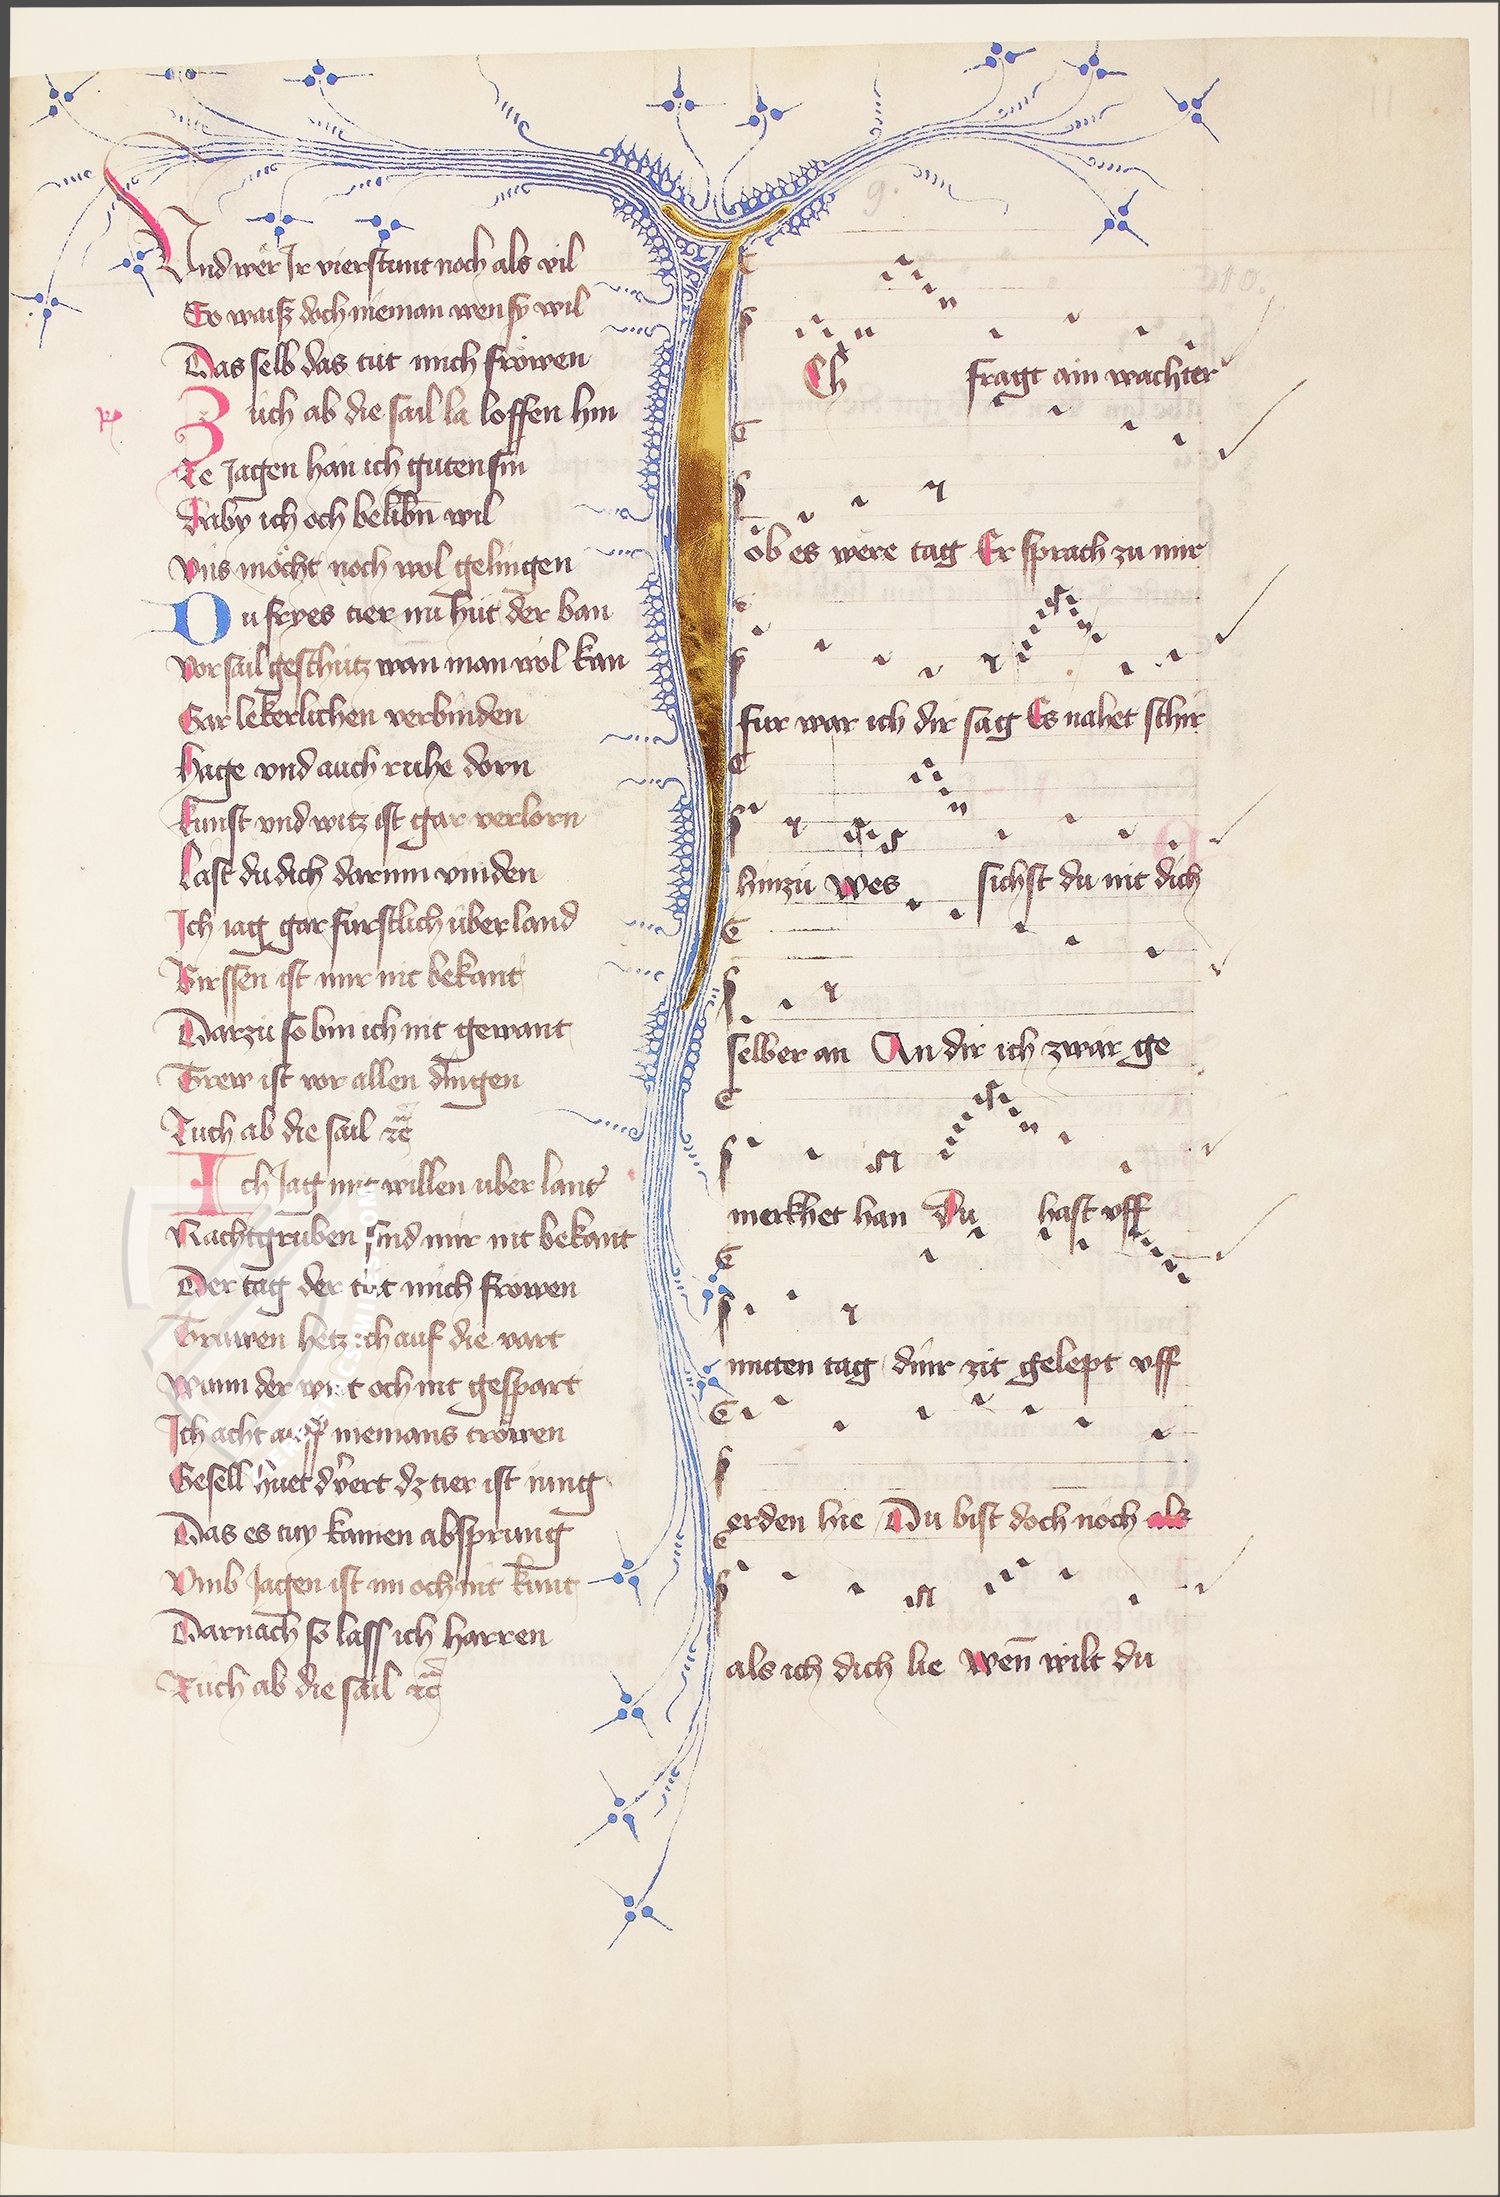 Vnd wer Ir vierstunt noch als vil
So waisz doch nieman wen sy wil
Das selb das tut mich fröwen
Zuch ab die sail la loffen hin
Ze Jagen han ich guten sin
Daby ich och belibn̄ wil
Vns möcht noch wol gelingen
Du fryes tier nu hut der ban
Vor sail geschutz wan man wol kan
Gar lekerlichen verbinden
Hage vnd auch ruhe dorn
kunst vnd witz ist gar verlorn
Last du dich darinn vinden
Ich iag gar furstlich über land
Birssen ist mir nit bekant
Darzu so bin ich nit gewant
Trew ist vor allen dingen
Zuch ab die sail
Ich Jag mit willen uber lant
Nachtgruben sind mir nit bekant
Der tag der tut mich frowen
Truwen hetz ich auf die vart
Wann der wirt och nit gespart
Ich acht auff niemans tröwen
Gesell huet dz tier ist iung
Das es tuy kainen absprung
Vmb Jagen ist im och nit kunt
Darnach so lass ich harren
Zuch ab die sail
9.
Ich fragt ain wachter
ob es were tag Er sprach zu mir
fur war ich dir sag Es nahet schir
hinzu Wes sichst du nit dich
selber an An dir ich zwar ge
merkhet han Du hast vff
mitten tag dinr zit gelept vff
erden hie Du bist doch noch als
als ich dich lie Wen̄ wilt du